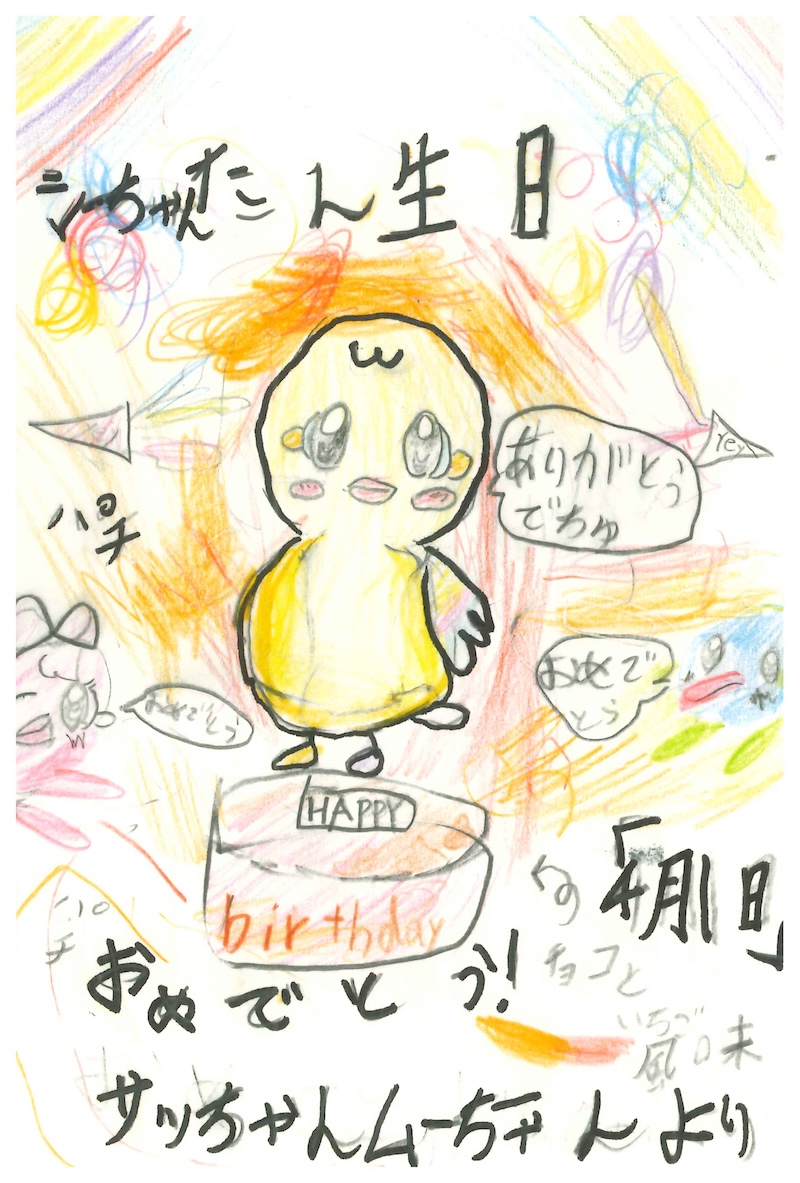 シーちゃんたん生日
ありがとう
でちゅ
rey
パチ
おめで
とう
おめでとう
HAPPY
birthday
「4月1日」
チョコと
いちご
風味
パチ
おめでとう!
サッちゃんムーちゃんより